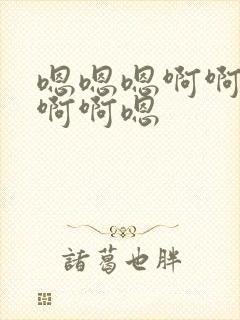 嗯嗯嗯啊啊
啊啊嗯
諸葛也胖